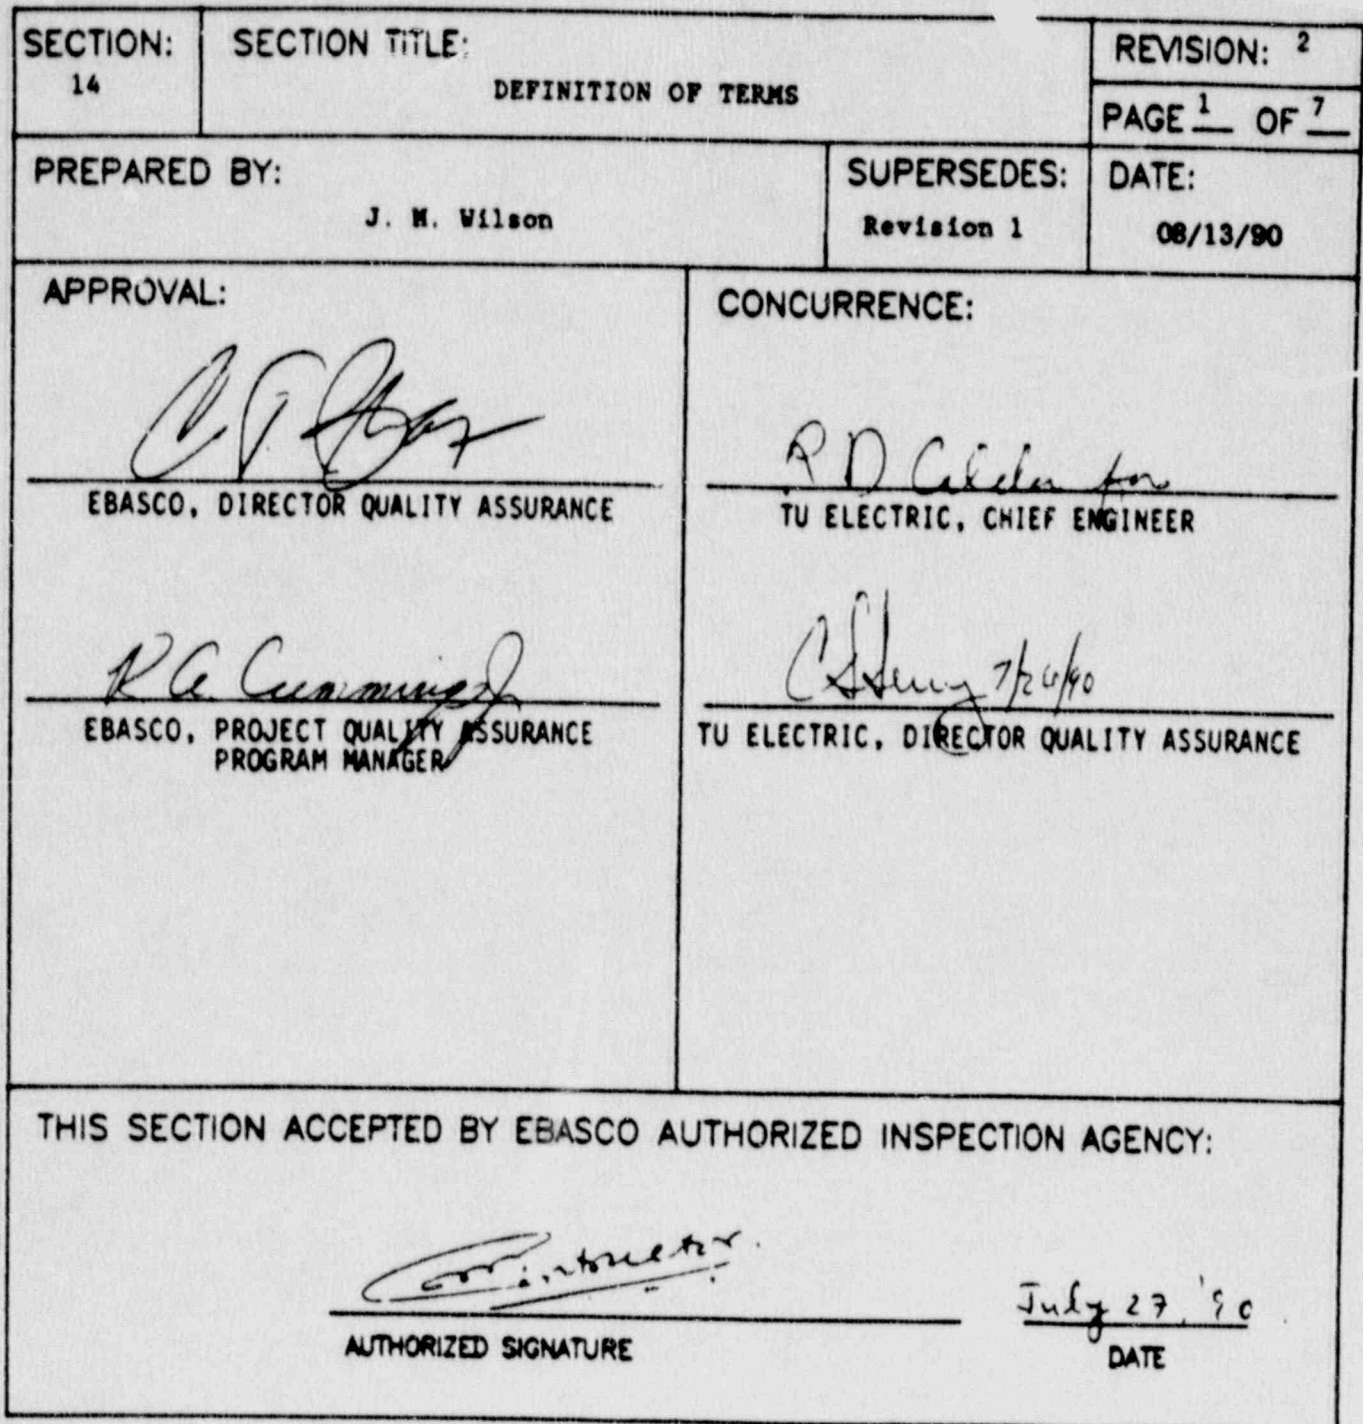 SECTION:
14
SECTION TITLE:
DEFINITION OF TERMS
REVISION: 2
PAGE 1 OF 7
PREPARED BY:
J. M. Wilson
SUPERSEDES:
Revision 1
DATE:
08/13/90
APPROVAL:
EBASCO, DIRECTOR QUALITY ASSURANCE
R A Cummings Jr
EBASCO, PROJECT QUALITY ASSURANCE
PROGRAM MANAGER
CONCURRENCE:
R D for
TU ELECTRIC, CHIEF ENGINEER
7/26/90
TU ELECTRIC, DIRECTOR QUALITY ASSURANCE
THIS SECTION ACCEPTED BY EBASCO AUTHORIZED INSPECTION AGENCY:
AUTHORIZED SIGNATURE
July 27, '90
DATE